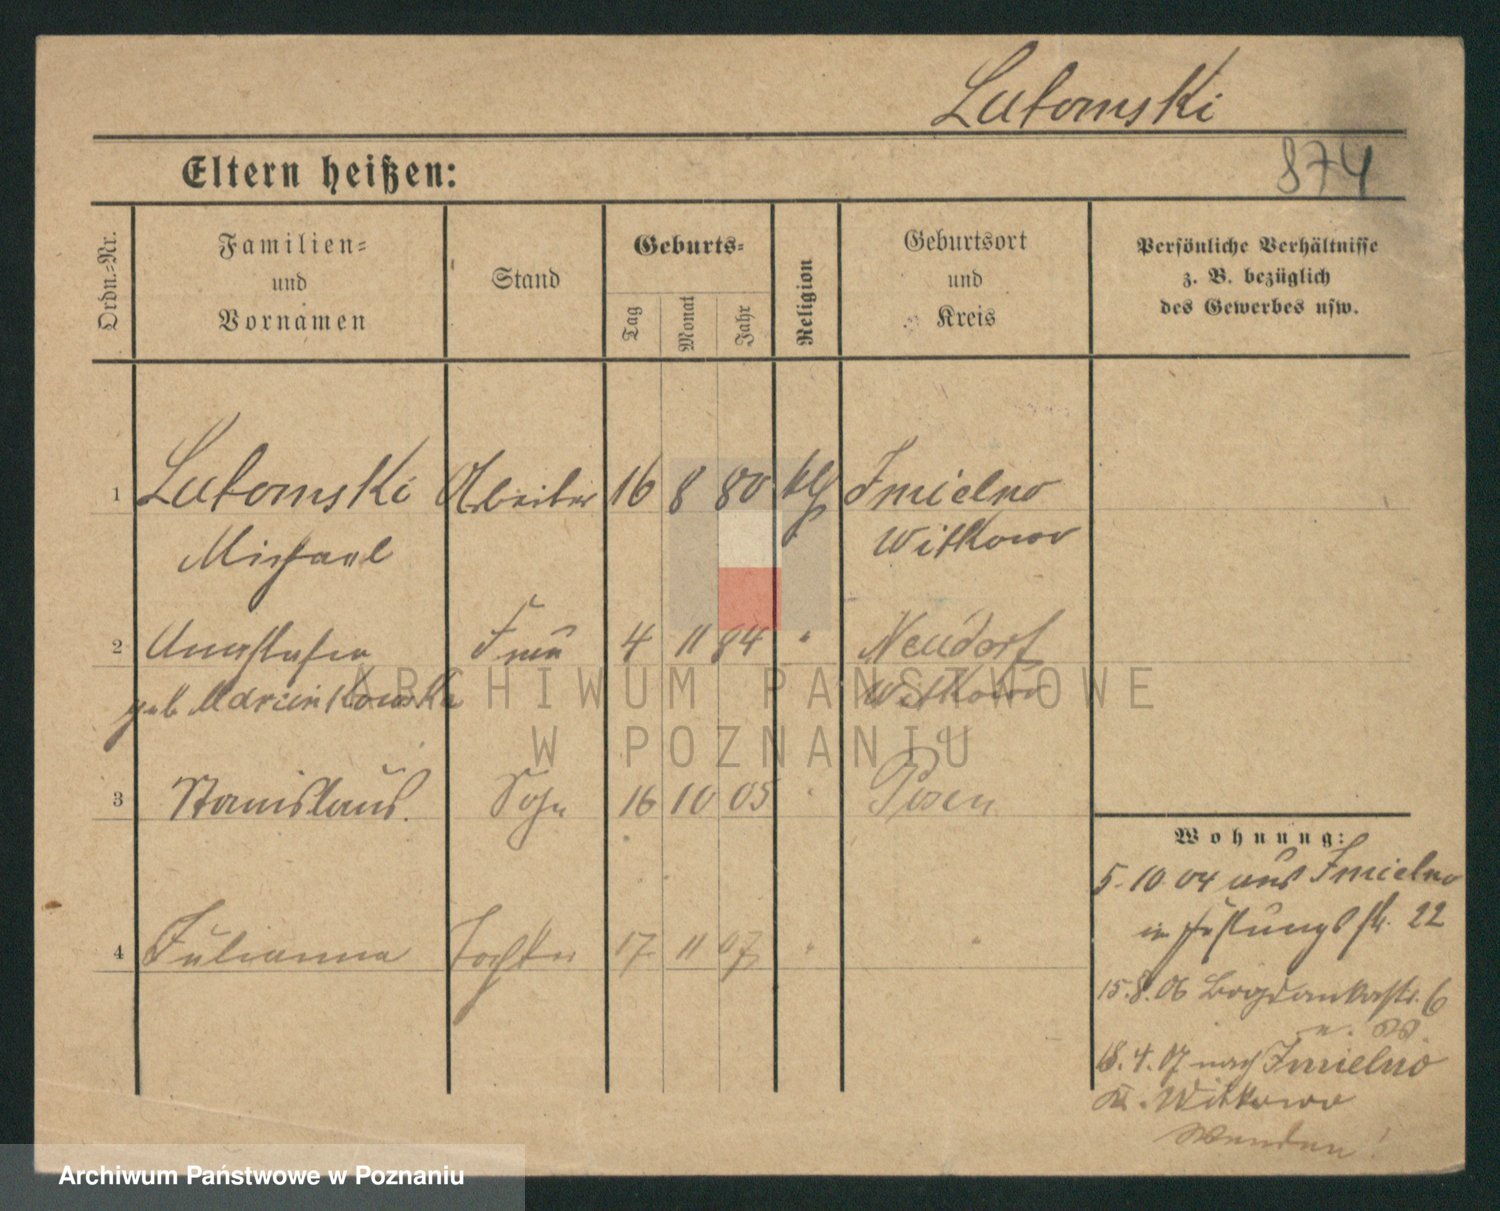 Lutomski
Eltern heißen:
874
Ordn.-Nr.
Familien-
und
Vornamen
Stand
Geburts-
Tag
Monat
Jahr
Religion
Geburtsort
und
Kreis
Persönliche Verhältnisse
z. B. bezüglich
des Gewerbes usw.
1 Lutomski Arbeiter 16 8 80 kth Imielno
Michael Witkowo
2 Anastasia Frau 4 11 84 " Neudorf
geb Marcinkowska Witkowo
3 Stanislaus. Sohn 16 10 05 " Posen
4 Julianna Tochter 17. 11 07 " "
Wohnung:
5.10 04 aus Imielno
in str. 22
15.8.06 Bogdankastr. 6
18.4.07 nach Imielno
Kr. Witkowo
Wenden!
ARCHIWUM PAŃSTWOWE
W POZNANIU
Archiwum Państwowe w Poznaniu